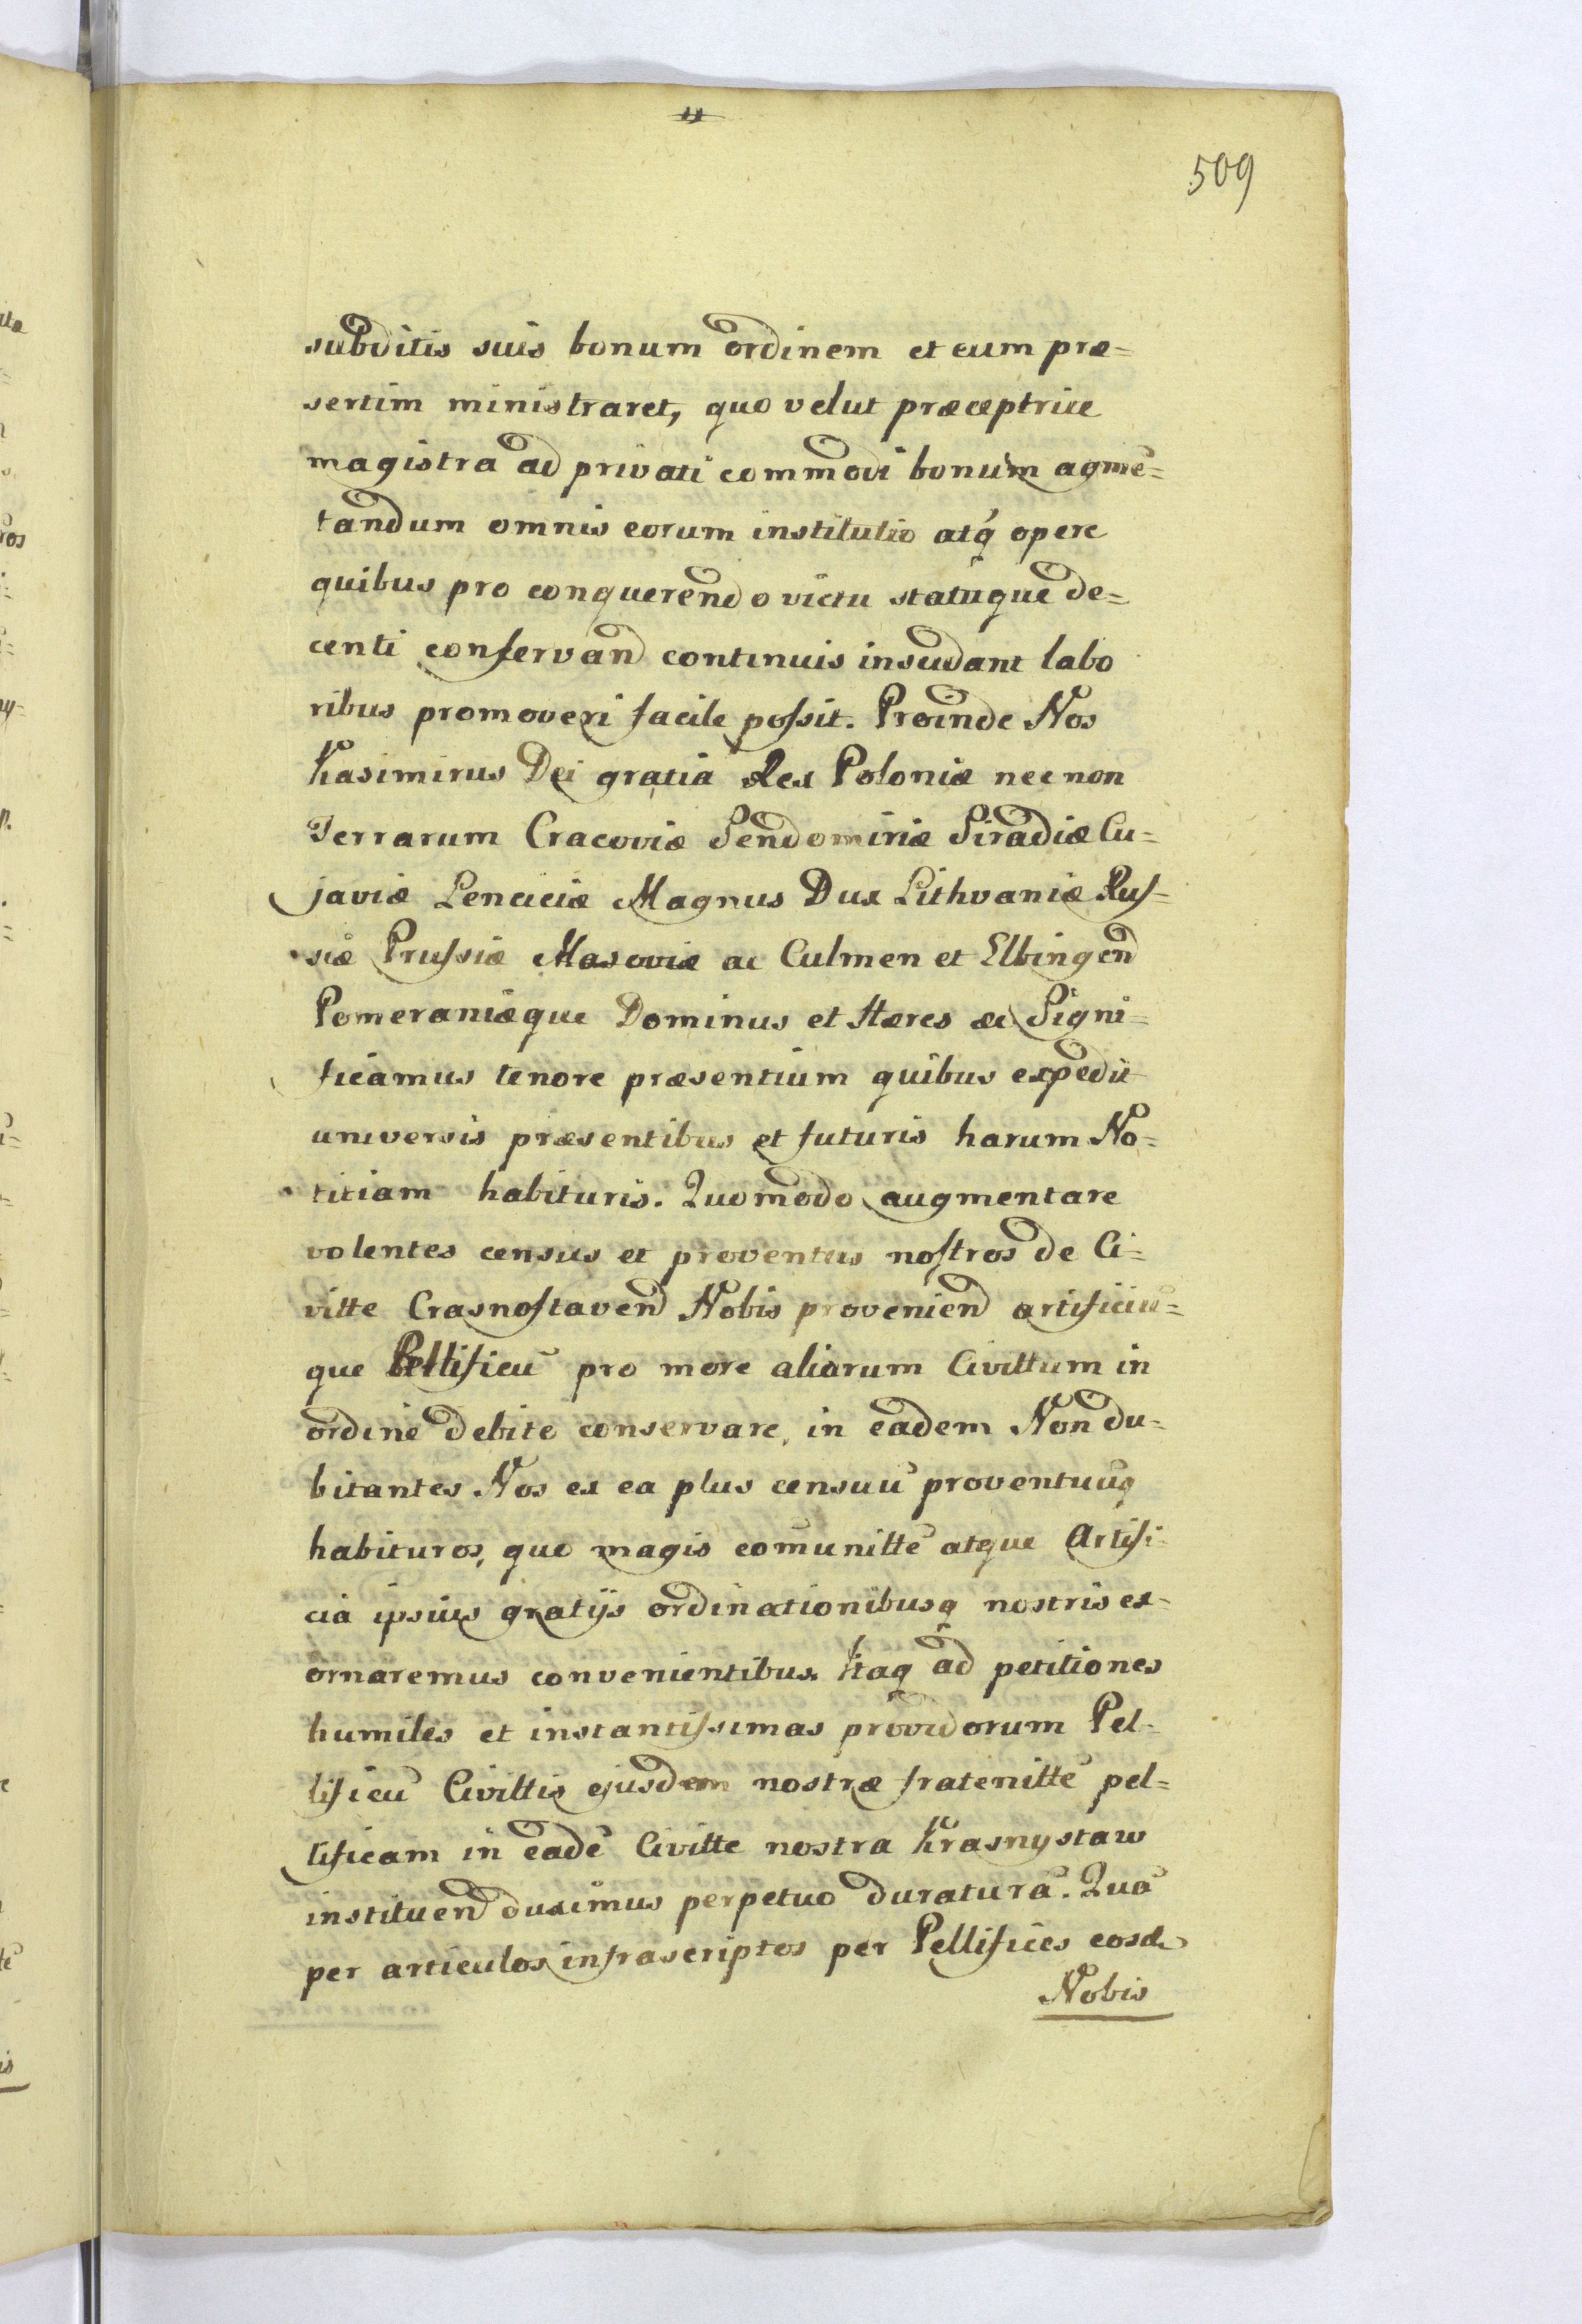 11
509
subditis suis bonum ordinem et eum præ=
sertim ministraret, quo velut præceptrice
magistra ad privati commodi bonum agmē=
tandum omnis eorum institutio atq́ opere
quibus pro conquerendo victu statûque de=
centi conſervand continuis insudant labo
ribus promoveri facile poſsit. Proinde Nos
Kasimirus Dei gratia Rex Poloniæ necnon
Terrarum Cracoviæ Sendomiriæ Siradiæ Cu=
javiæ Lenciciæ Magnus Dux Lithvaniæ Ruſ=
siæ Pruſsiæ Masoviæ ac Culmen et Elbingend
Pomeraniæque Dominus et Hæres &c Signi=
ficamus tenore præsentium quibus expedit
universis præsentibus et futuris harum No=
titiam habituris. Quomodo augmentare
volentes census et proventus noſtros de Ci=
vitte Crasnoſtavend Nobis proveniend artificiū=
que Pellificū pro more aliarum Civittum in
ordine debite conservare, in eadem Non du=
bitantes Nos ex ea plus censuū proventuūq
habituros, quo magis com̄unittē atque Artifi=
cia ipsius gratijs ordinationibusq nostris ex=
ornaremus convenientibus. Itaq ad petitiones
humiles et instantiſsimas providorum Pel=
lificū Civittis ejusdem nostræ fratenittē pel=
lificam in eadē Civitte nostra Krasnystaw
instituend duximus perpetuo duraturā. Quā
per articulos infrascriptos per Pellifices eosd
Nobis